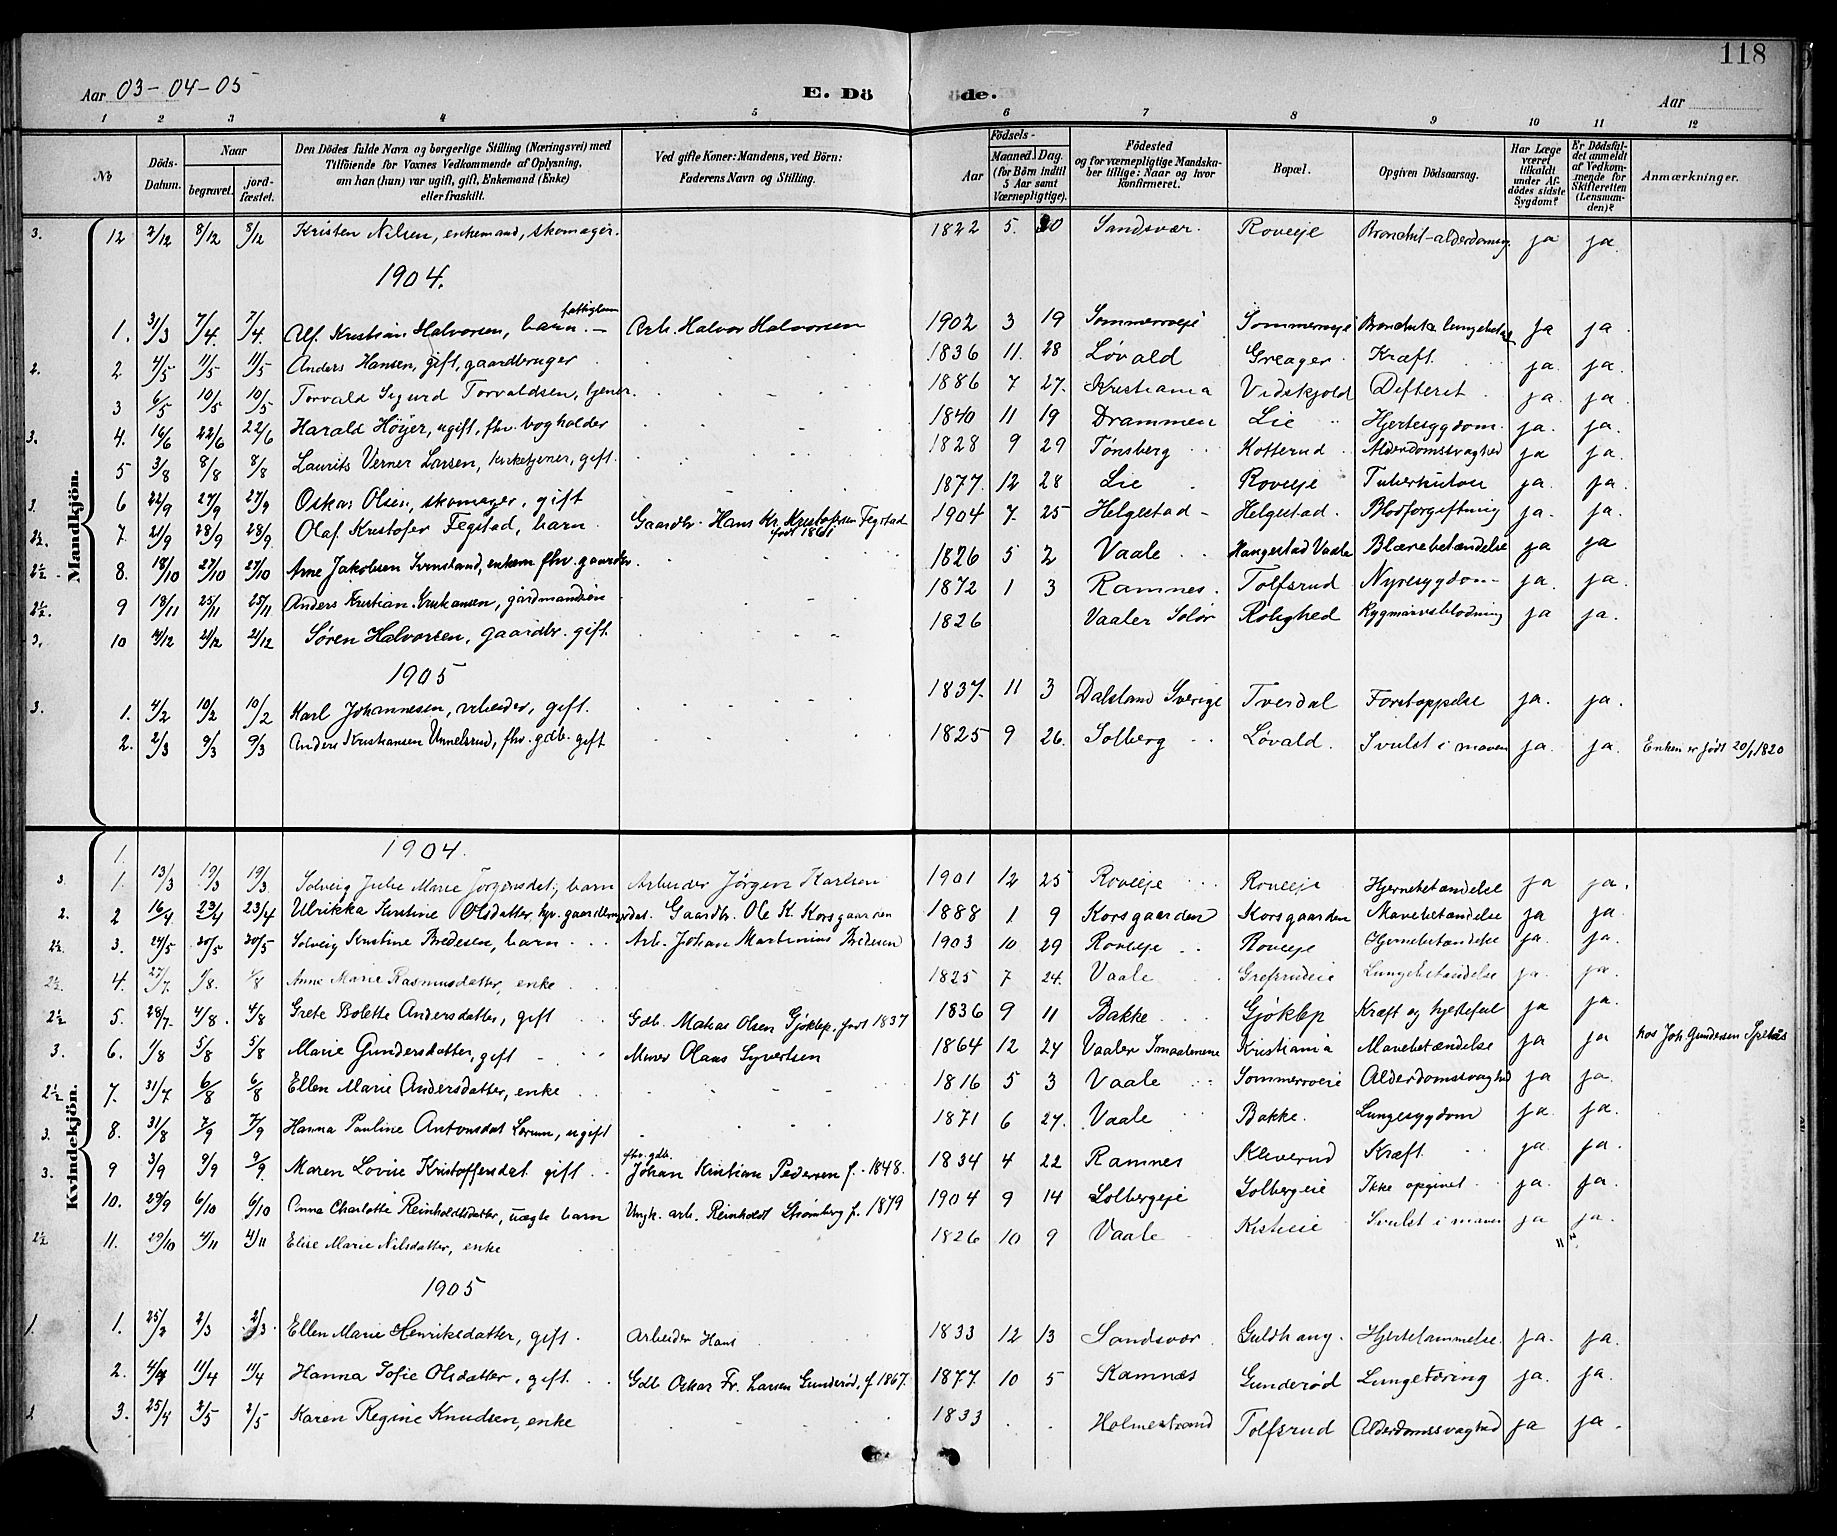 118
Aar 03-04-05
E. Dö de.
Aar
1 2 3 4 5 6 7 8 9 10 11 12
No
Döds-Datum.
Naar
begravet.
jord-fæstet.
Den Dödes fulde Navn og borgerlige Stilling (Næringsvei) med
Tilföiende for Voxnes Vedkommende af Oplysning,
om han (hun) var ugift, gift, Enkemand (Enke)
eller fraskilt.
Ved gifte Koner: Mandens, ved Börn:
Faderens Navn og Stilling.
Födsels-
Aar
Maaned. Dag.
(for Börn indtil
5 Aar samt
Værnepligtige).
Födested
og for værnepligtige Mandska-
ber tillige: Naar og hvor
konfirmeret.
Bopæl.
Opgiven Dödsaarsag.
Har Læge
været
tilkaldt
under Af-
dödes sidste
Sygdom?
Er Dödsfal-
det anmeldt
af Vedkom-
mende for
Skifteretten
(Lensman-
den)?
Anmærkninger.
Mandkjön.
3. 12 2/12 8/12 8/12 Kristen Nilsen, enkemand, skomager. 1822 5. Sandsvær. Roveije Bronchit-alderdomsv. ja ja.
1904.
1. 31/3 7/4. 7/4. Alf Kristian Halvorsen, barn. fattiglem Arb. Halvor Halvorsen 1902 3 19 Sommerveje Sommerveje Bronchit & lungebet. ja ja.
2. 2 4/5 11/5 11/5 Anders Hansen, gift, gaardbruger 1836 11. 28 Løvald Greager Kræft. ja. ja.
3 6/5 10/5 10/5 Torvald Sigurd Torvaldsen, tjener. 1886 7 27. Kristiania Vidskjold Difterit ja. ja.
3. 4. 16/6 22/6 22/6 Harald Höyer, ugift, fhv. bogholder 1840 11 19 Drammen Lie Hjertesygdom. ja. ja.
5 3/8 8/8 8/8 Laurits Verner Larsen, kirketjener, gift. 1828 9 29 Tønsberg Kotterud Alderdomssvaghed ja ja.
3. 6 22/9 27/9 27/9 Oskar Olsen, skomager, gift 1877. 12 28 Lie Roveije Tuberkulose ja. ja.
2½. 7. 21/9 28/9 28/9. Olaf Kristofer Fegstad, barn. Gaardbr. Hans Kr. Kristofersen Fegstad født 1861 1904 7. 25 Helgestad Helgestad. Blodforgiftning ja. ja.
2½ 8. 18/10 27/10 27/10 Arne Jakobsen Svinsland, enkem. fhv. gaardbr. 1826 5 2 Vaale Hangestad Vaale Blærebetændelse ja ja
2½. 9 18/11 25/11 25/11 Anders Kristian Kristiansen, gårdmandsøn 1872 1 3 Ramnes. Tolfsrud Nyresygdom ja. ja.
3. 10 21/12 21/12 Søren Halvorsen, gaardbr. gift. 1826 Vaaler Solør Rolighed Rygmarvsblødning ja ja.
1905
3. 1. 4/2 10/2 10/2 Karl Johannesen, arbeider, gift. 1837. 11 3 Dalsland Sverige Tverdal Forstoppelse ja. ja.
2. 2/3 9/3 9/3 Anders Kristiansen Unnelsrud, fhv. gdb. gift 1825 9 26. Solberg Løvald. Svulst i maven ja. ja. Enken er født 20/1 1820
Kvindekjön.
1. 1904.
3. 1. 13/3 19/3 19/3. Solveig Julie Marie Jørgensdat., barn Arbeider Jørgen Karlsen 1901 12 25 Roveije Roveije Hjernebetændelse ja ja.
2. 2 16/4 23/4 23/4 Ulrikka Kristine Olsdatter, gaardbrugerdat. Gaardbr. Ole K. Korsgaarden 1888 1 9 Korsgaarden Korsgaarden Mavebetændelse ja ja.
2½. 3. 24/5 30/5 30/5 Solveig Kristine Bredesen, barn Arb. Johan Martinius Bredesen 1903 10 29 Roveije Roveije Hjernebetændelse ja. ja.
2½. 4. 27/7 1/8. 1/8 Anne Marie Rasmusdatter, enke 1825 7 24. Vaale Grefsrudeie Lungebetændelse ja. ja.
2½ 5. 28/7. 4/8. 4/8 Grete Bolette Andersdatter, gift Gdb. Matias Olsen Gjøklep, født 1837 1836 9 11 Bakke Gjøklep Kræft og hjertefeil ja ja.
3. 6. 1/8 5/8 5/8 Marie Gundersdatter, gift Murer Olaus Syvertsen 1864 12 24 Vaaler Smaalenene Kristiania Mavebetændelse ja ja hos Joh. Gundersen
2½ 7. 31/7 6/8 6/8 Ellen Marie Andersdatter, enke 1816 5 3 Vaale Sommerveie Alderdomssvaghed ja ja.
3. 8. 31/8 7/9 7/9 Hanna Pauline Antonsdat. Lorum, ugift 1871 6 27. Vaale Bakke. Lungesygdom ja. ja.
3. 9 3/9 9/9 9/9. Maren Lovise Kristoffersdat. gift fhv. gdb. Johan Kristian Pedersen f. 1848. 1834 4 22 Ramnes Kleverud Kræft ja. ja.
10. 29/9 6/10 6/10 Anna Charlotte Reinholdtsdatter, uægte barn Ungk. arb. Reinholdt Strömberg f. 1879 1904 9 14 Solbergeje Solbergeie Ikke opgivet ja. ja.
2½ 11. 29/10 4/11 4/11 Elise Marie Nilsdatter, enke 1826 10 9 Vaale Kisteie Svulst i maven ja ja.
1905
1. 1. 25/2 2/3 2/3. Ellen Marie Henriksdatter, gift. Arbeider Hans 1833 12 13 Sandsvær. Guldhaug. Hjertelammelse. ja. ja.
2. 4/4 11/4 11/4 Hanna Sofie Olsdatter, gift. Gdb Oskar Fr. Larsen Gunderød, f 1867. 1877. 10 5 Ramnæs Gunderød Lungetæring ja. ja.
2 3. 25/4 2/5 2/5 Karen Regine Knudsen, enke 1833 Holmestrand Tolfsrud Alderdomssvaghed ja ja.